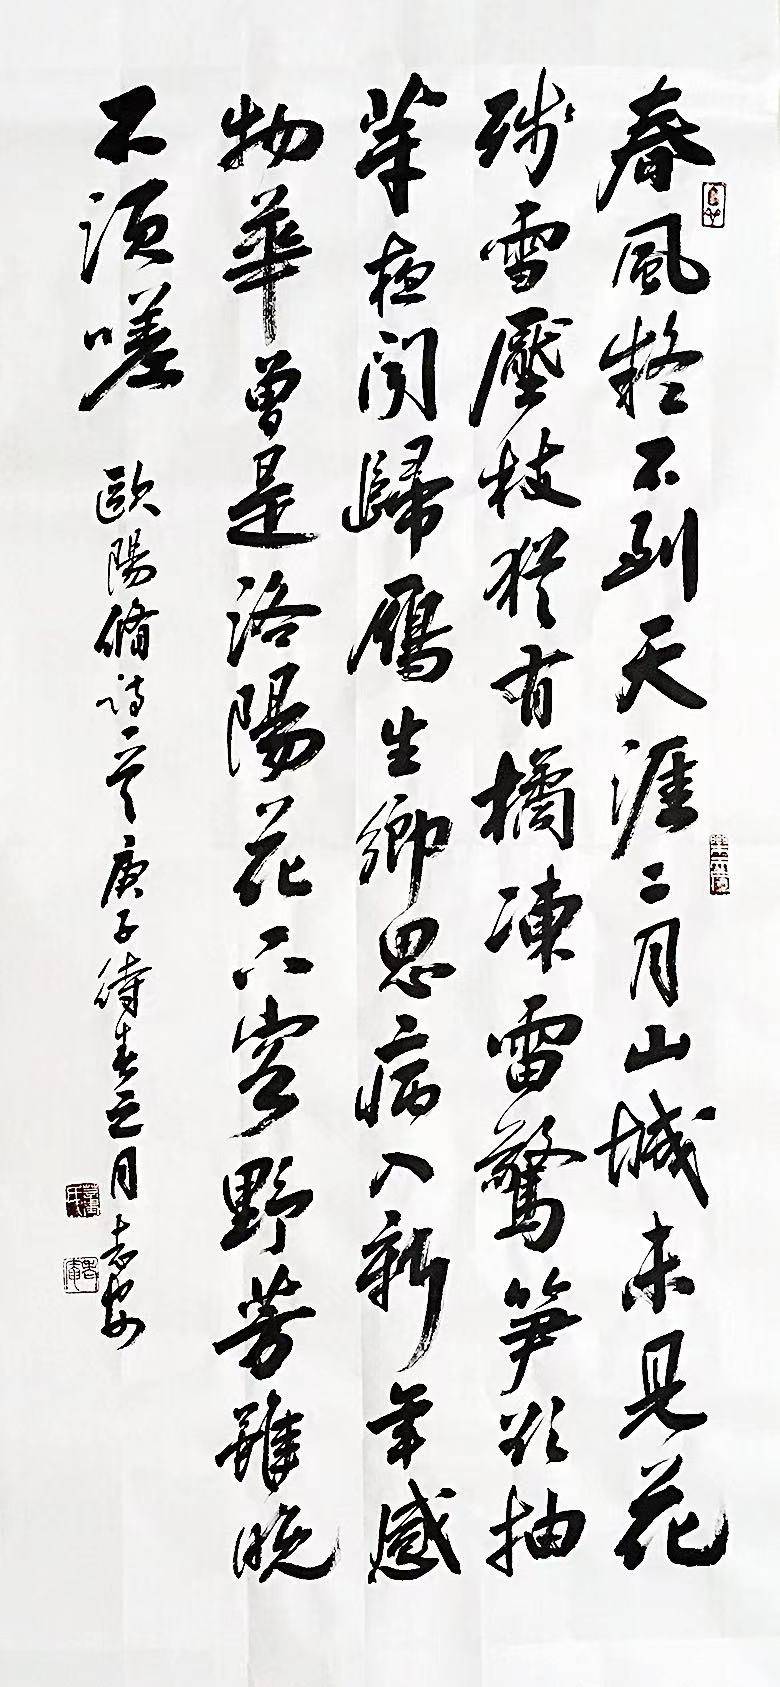 春風疑不到天涯二月山城未見花
殘雪壓枝猶有橘凍雷驚笋欲抽
芽夜聞歸鴈生鄉思病入新年感
物華曾是洛陽花下客野芳雖晚
不須嗟 歐陽脩詩一首庚子待春 月志